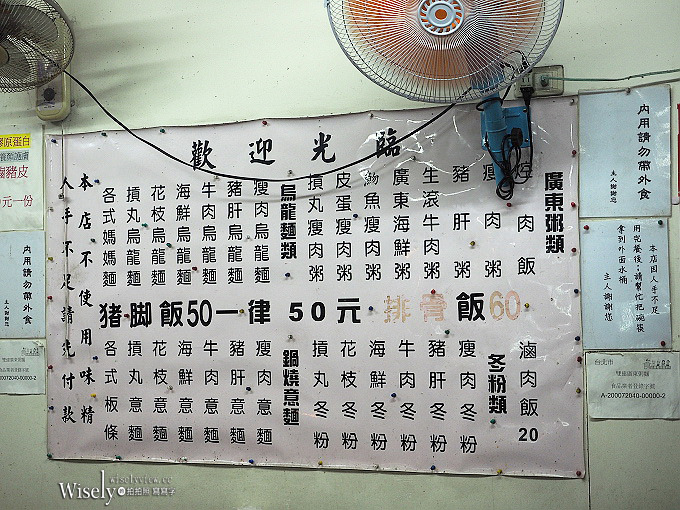 歡迎光臨
廣東粥類
肉飯
瘦肉粥
豬肝粥
生滾牛肉粥
廣東海鮮粥
魩魚瘦肉粥
皮蛋瘦肉粥
摃丸瘦肉粥
烏龍麵類
瘦肉烏龍麵
豬肝烏龍麵
牛肉烏龍麵
海鮮烏龍麵
花枝烏龍麵
摃丸烏龍麵
各式媽媽麵
本店不使用味精
人手不足請先付款
猪脚飯50一律50元排骨飯60
滷肉飯20
冬粉類
瘦肉冬粉
豬肝冬粉
牛肉冬粉
海鮮冬粉
花枝冬粉
摃丸冬粉
鍋燒意麵
瘦肉意麵
豬肝意麵
牛肉意麵
海鮮意麵
花枝意麵
摃丸意麵
各式板條
膠原蛋白
滷豬皮
元一份
內用請勿帶外食
主人謝謝您
內用請勿帶外食
主人謝謝您
本店因人手不足
用完餐後:請幫忙把碗筷
拿到外面水桶
主人謝謝您
台北市
雙連廣東粥麵
食品業者登錄字號
A-200072040-00000-2
雙連廣東粥麵
食品業者登錄字號
200072040-00000-2
wiselyview.cc
Wisely拍拍照寫寫字